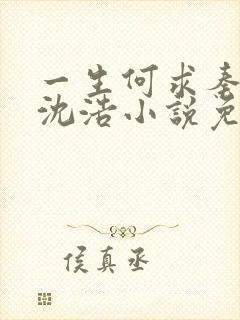 一生何求秦
沈浩小說免
侯真丞